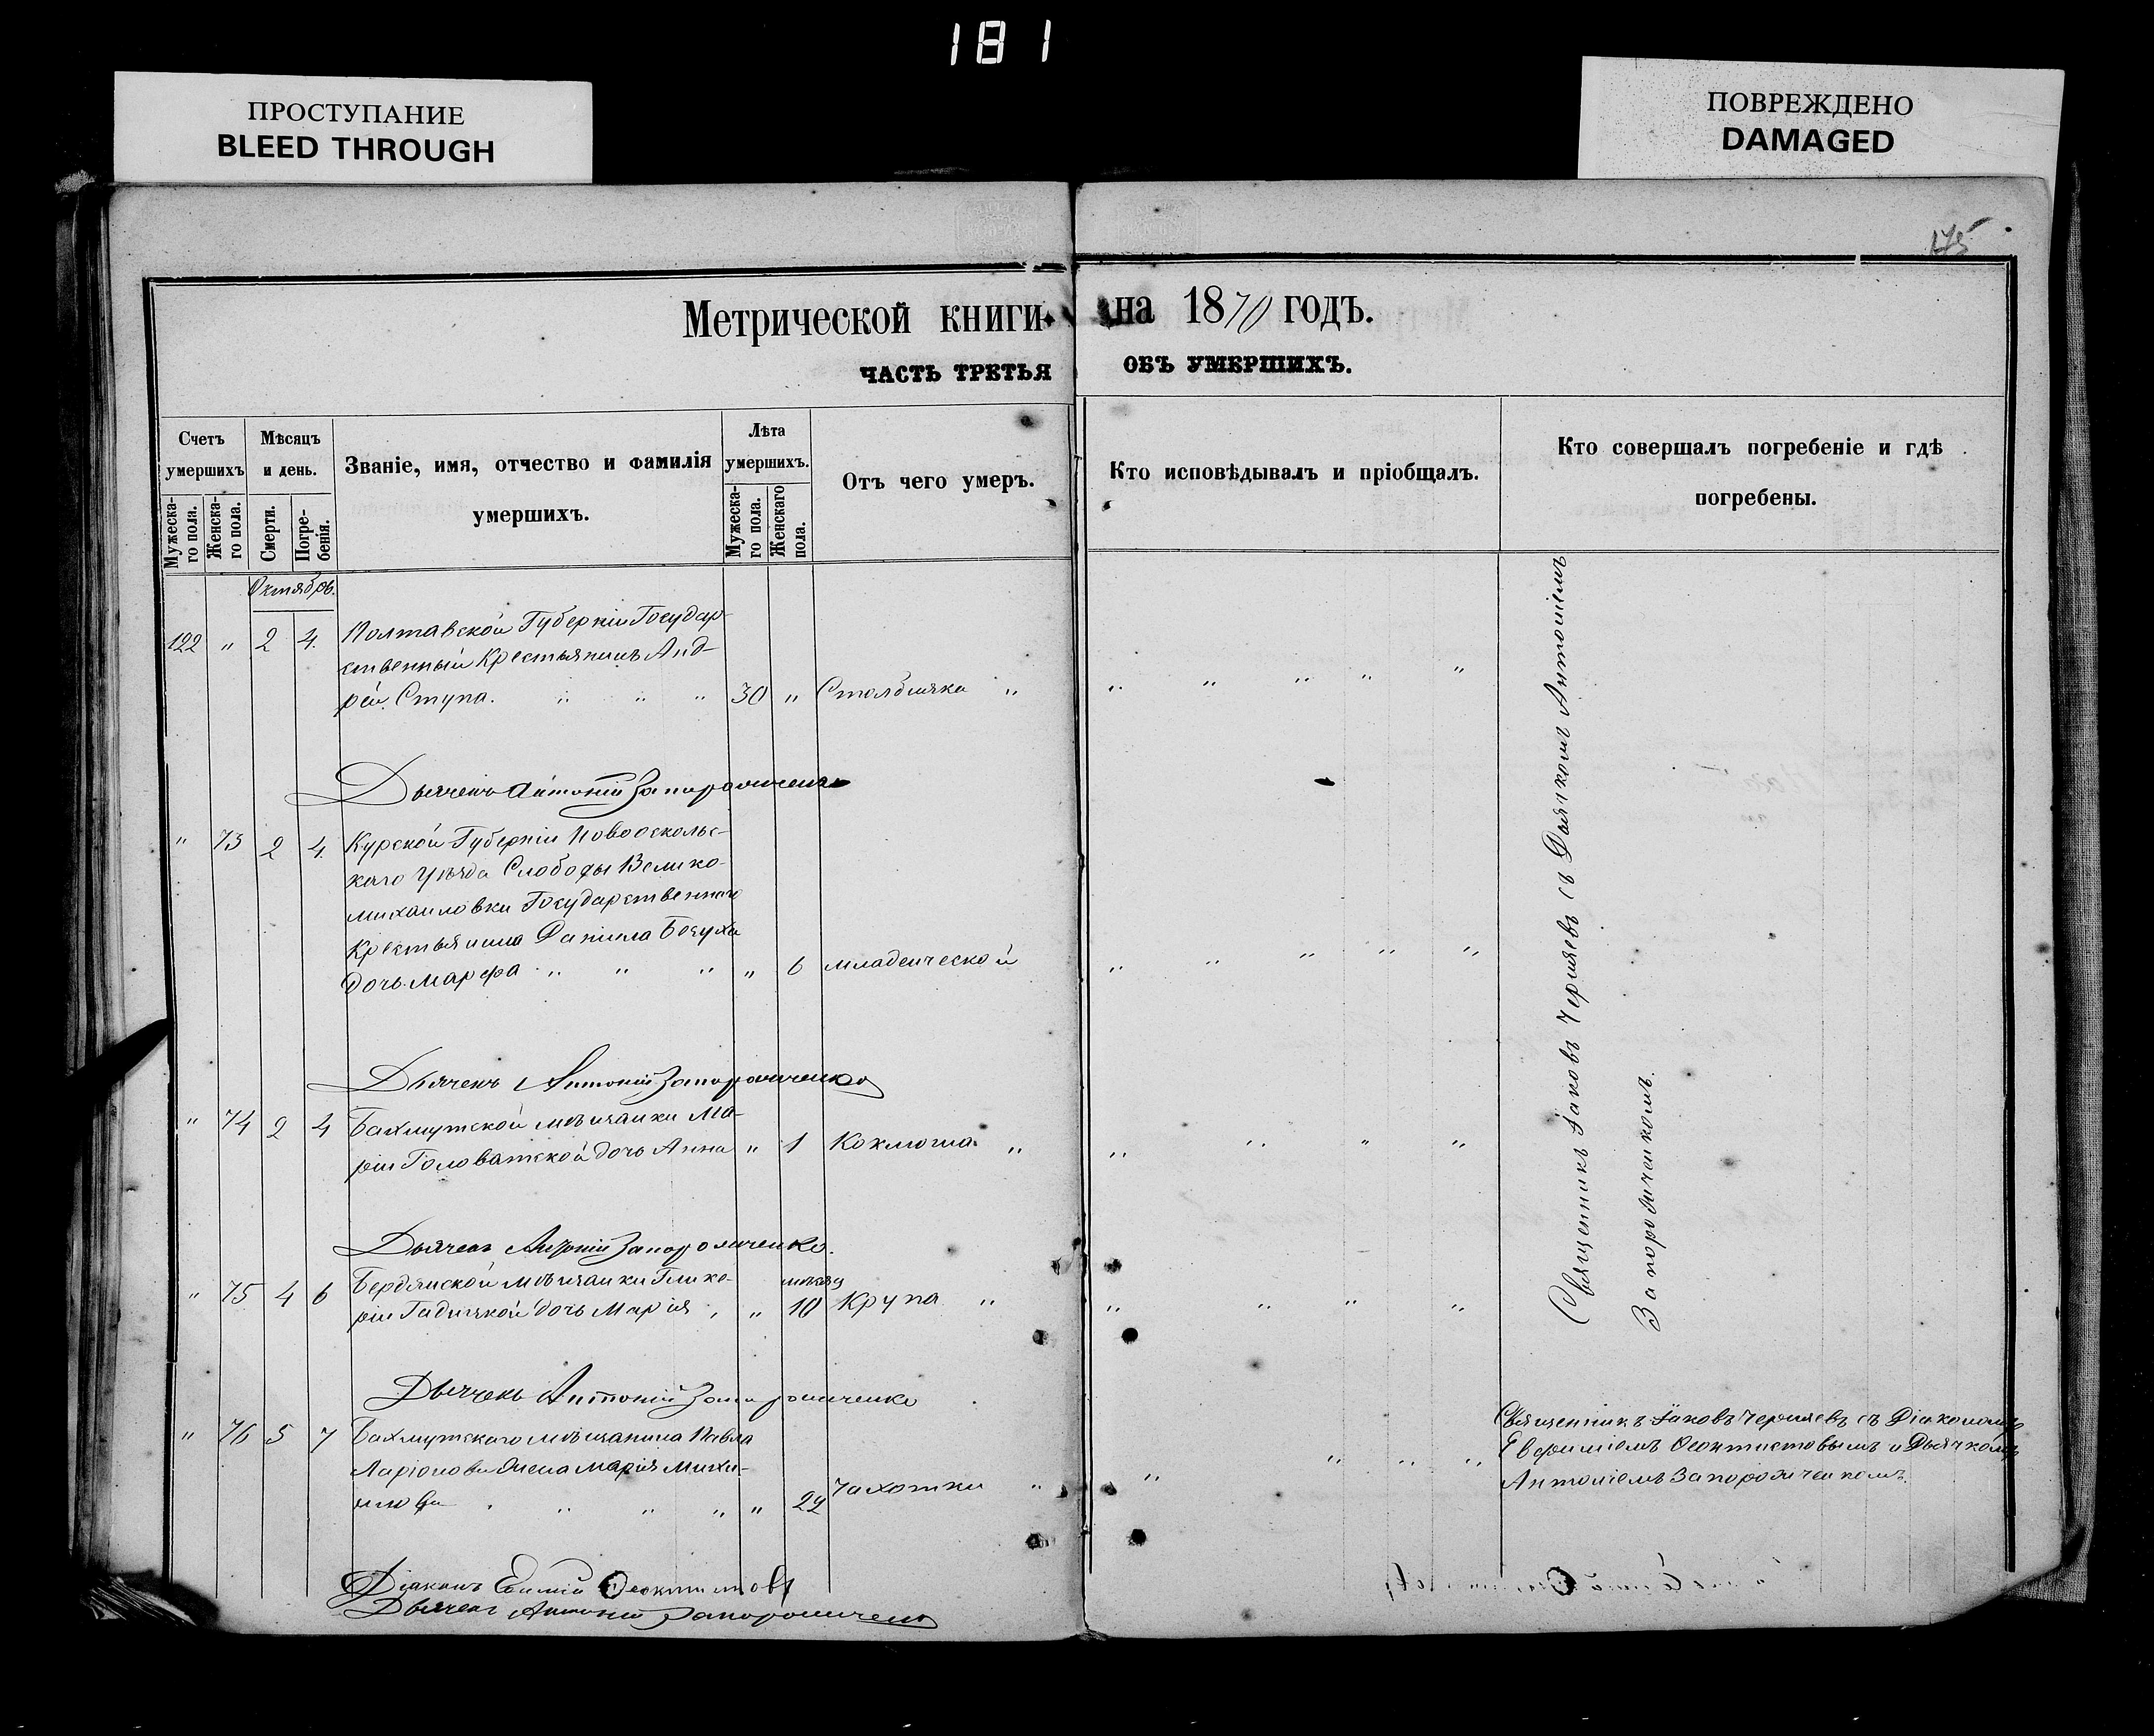 181
ПРОСТУПАНИЕ
BLEED THROUGH
ПОВРЕЖДЕНО
DAMAGED
175
Метрической книги на 1870 годъ.
ЧАСТЬ ТРЕТЬЯ ОБЪ УМЕРШИХЪ.
Счетъ умершихъ
Мѣсяцъ и день.
Званіе, имя, отчество и фамилія умершихъ.
Лѣта умершихъ.
Отъ чего умеръ.
Кто исповѣдывалъ и пріобщалъ.
Кто совершалъ погребеніе и гдѣ погребены.
Мужеска-го пола.
Женска-го пола.
Смерти.
Погре-бенія.
Мужеска-го пола.
Женскаго пола.
Октябрь.
122 " 2 4. Полтавской Губерніи Государ-
ственный Крестьянинъ Анд-
рей Ступа. " " " 30 " Столбняка "
Дьячекъ Антоній Запорожченко
" 73 2 4. Курской Губерніи Новооскольс-
каго Уѣзда Слободы Велико-
михайловки Государственнаго
Крестьянина Данила
дочь Марфа " " " " 6 младенческой
Дьячекъ Антоній Запорожченко
" 74 2 4 Бахмутской мѣщанки Ма-
ріи Головатской дочь Анна " 1 Коклюша "
Дьячекъ Антоній Запорожченко.
" 75 4 6 Бердянской мѣщанки Глике-
ріи Гадицкой дочь Марія " " 10 Крупа "
Дьячекъ Антоній Запорожченко
" 76 5 7 Бахмутскаго мѣщанина Павла
Ларіонова жена Марія Михай-
лова " " " " " 22 Чахотки "
Діаконъ Евфимій Ѳеоктистовъ
Дьячекъ Антоній Запорожченко
Священникъ Іаковъ Черняевъ съ Дьячкомъ Антоніемъ
Запорожченкомъ.
Священникъ Іаковъ Черняевъ съ Діакономъ
Евфиміемъ Ѳеоктистовымъ и Дьячкомъ
Антоніемъ Запорожченкомъ.